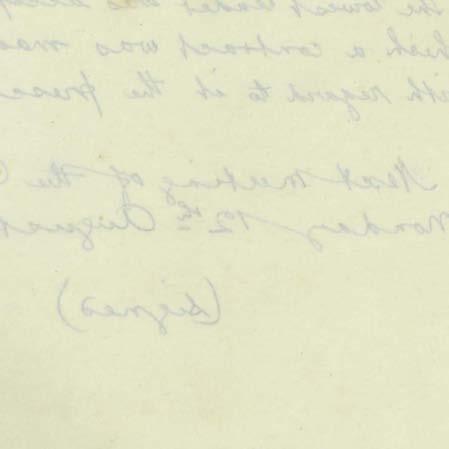 the lowest tender was accep
which a contract was mad
with regard to it the prese
Next meeting of the
Monday 12th August
(Signed)